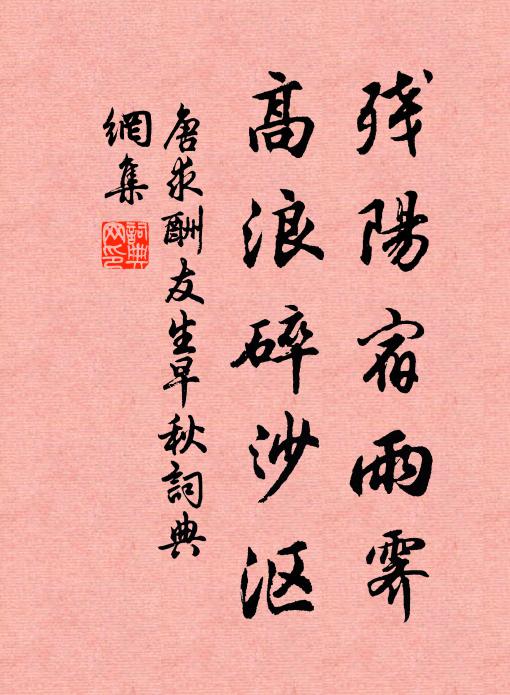 残陽宿雨霽
高浪碎沙漚
唐求酬友生早秋詞典
網集
詞典網印